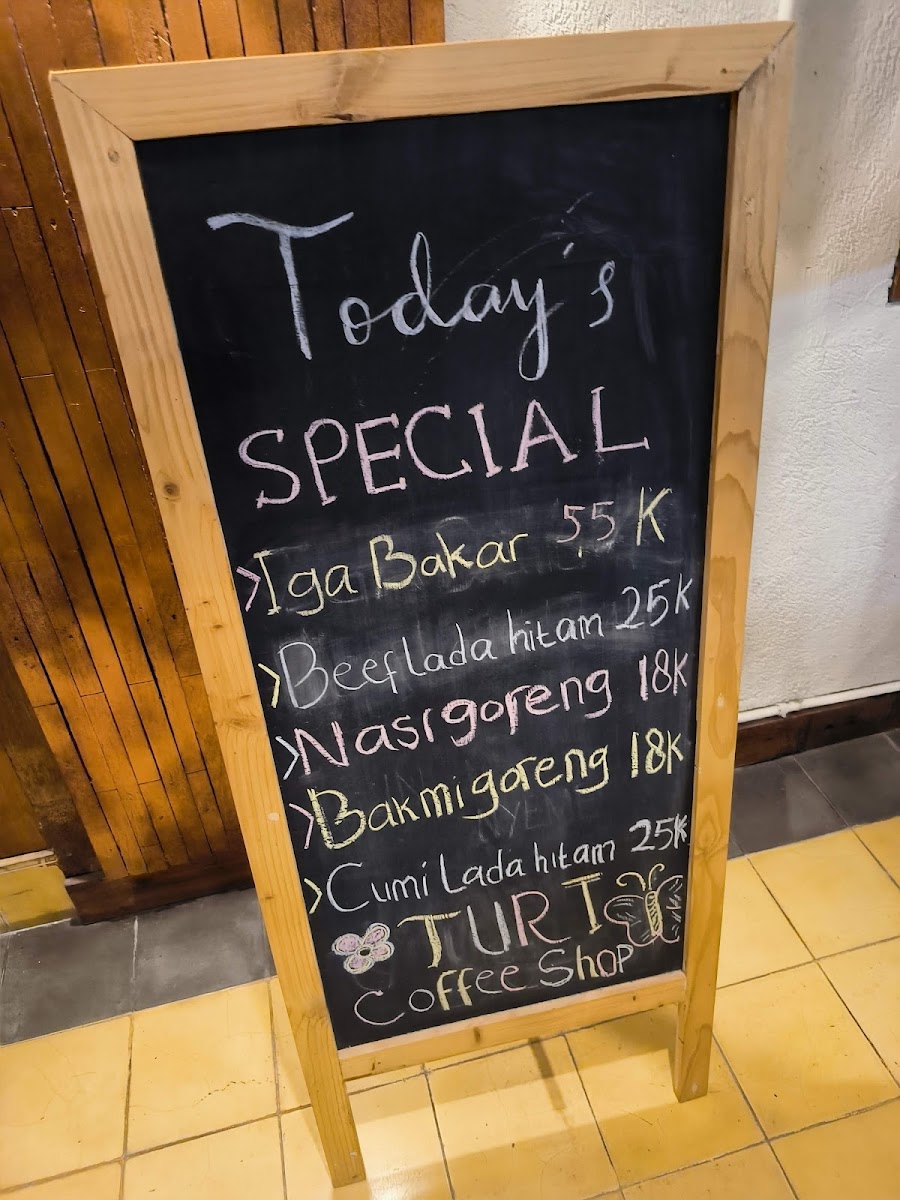 Today's
SPECIAL
>Iga Bakar 55 K
>Beef lada hitam 25K
>Nasi goreng 18K
>Bakmi goreng 18K
>Cumi Lada hitam 25K
TURI
Coffee Shop